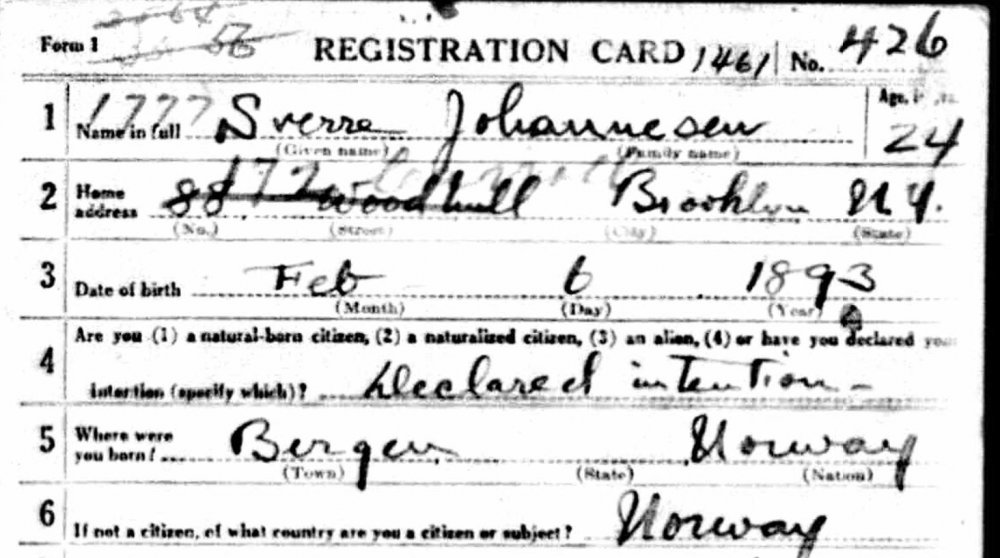 Form 1 REGISTRATION CARD 1461 No. 426
1 1777 Name in full Sverre Johannesen Age, in yrs. 24
(Given name) (Family name)
2 Home address 88 172 Woodhull Brooklyn N.Y.
(No.) (Street) (City) (State)
3 Date of birth Feb 6 1893
(Month) (Day) (Year)
Are you (1) a natural-born citizen, (2) a naturalized citizen, (3) an alien, (4) or have you declared your
4 intention (specify which)? Declared intention -
5 Where were you born? Bergen Norway
(Town) (State) (Nation)
6 If not a citizen, of what country are you a citizen or subject? Norway